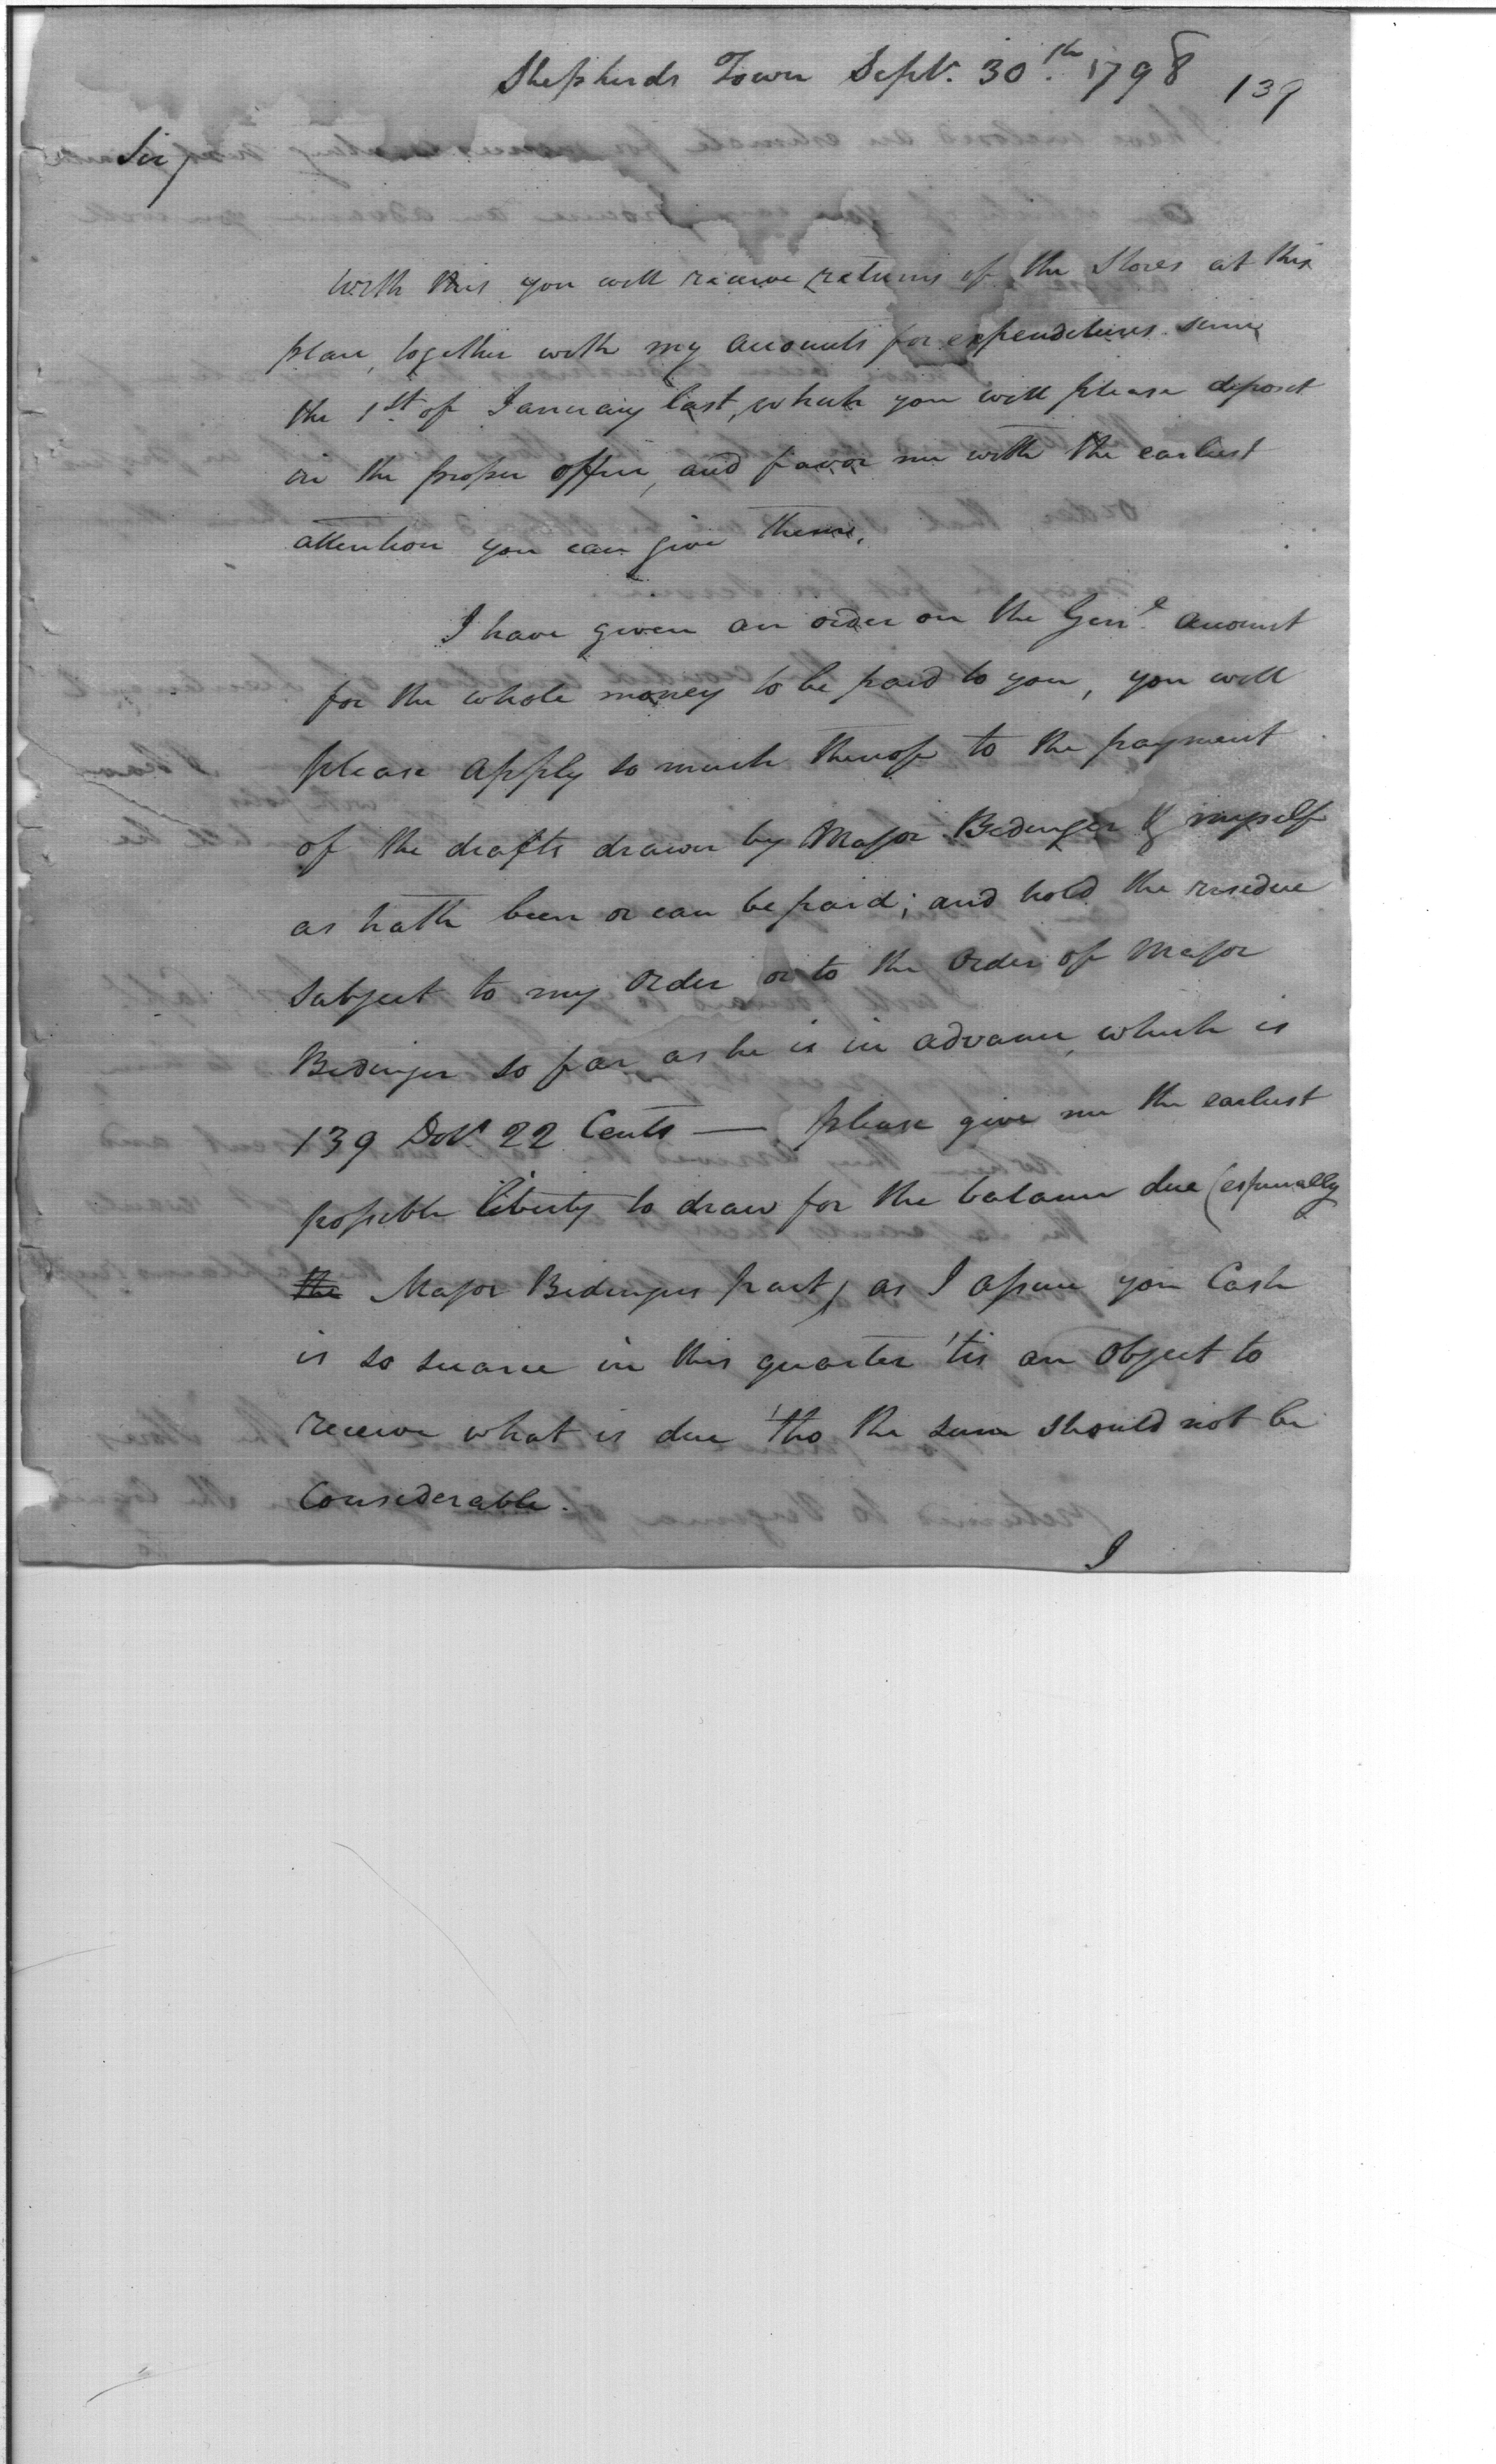 Shepherds Town Sept. 30th 1798 139
Sir,
With this you will receive returns of the Stores at this
place, together with my accounts for expenditures since
the 1st of January last, which you will please deposit
in the proper office, and favor me with the earliest
attention you can give them.
I have given an order on the Genl. account
for the whole money to be paid to you, you will
please apply so much thereof to the payment
of the drafts drawn by Major Bedinger & myself
as hath been or can be paid; and hold the residue
subject to my order or to the Order of Major
Bedinger so far as he is in advance, which is
139 Dolls. 22 Cents — please give me the earliest
possible liberty to draw for the balance due (especially
the Major Bedingers part) as I assure you Cash
is so scarce in this quarter 'tis an Object to
receive what is due 'tho the sum should not be
Considerable.
I